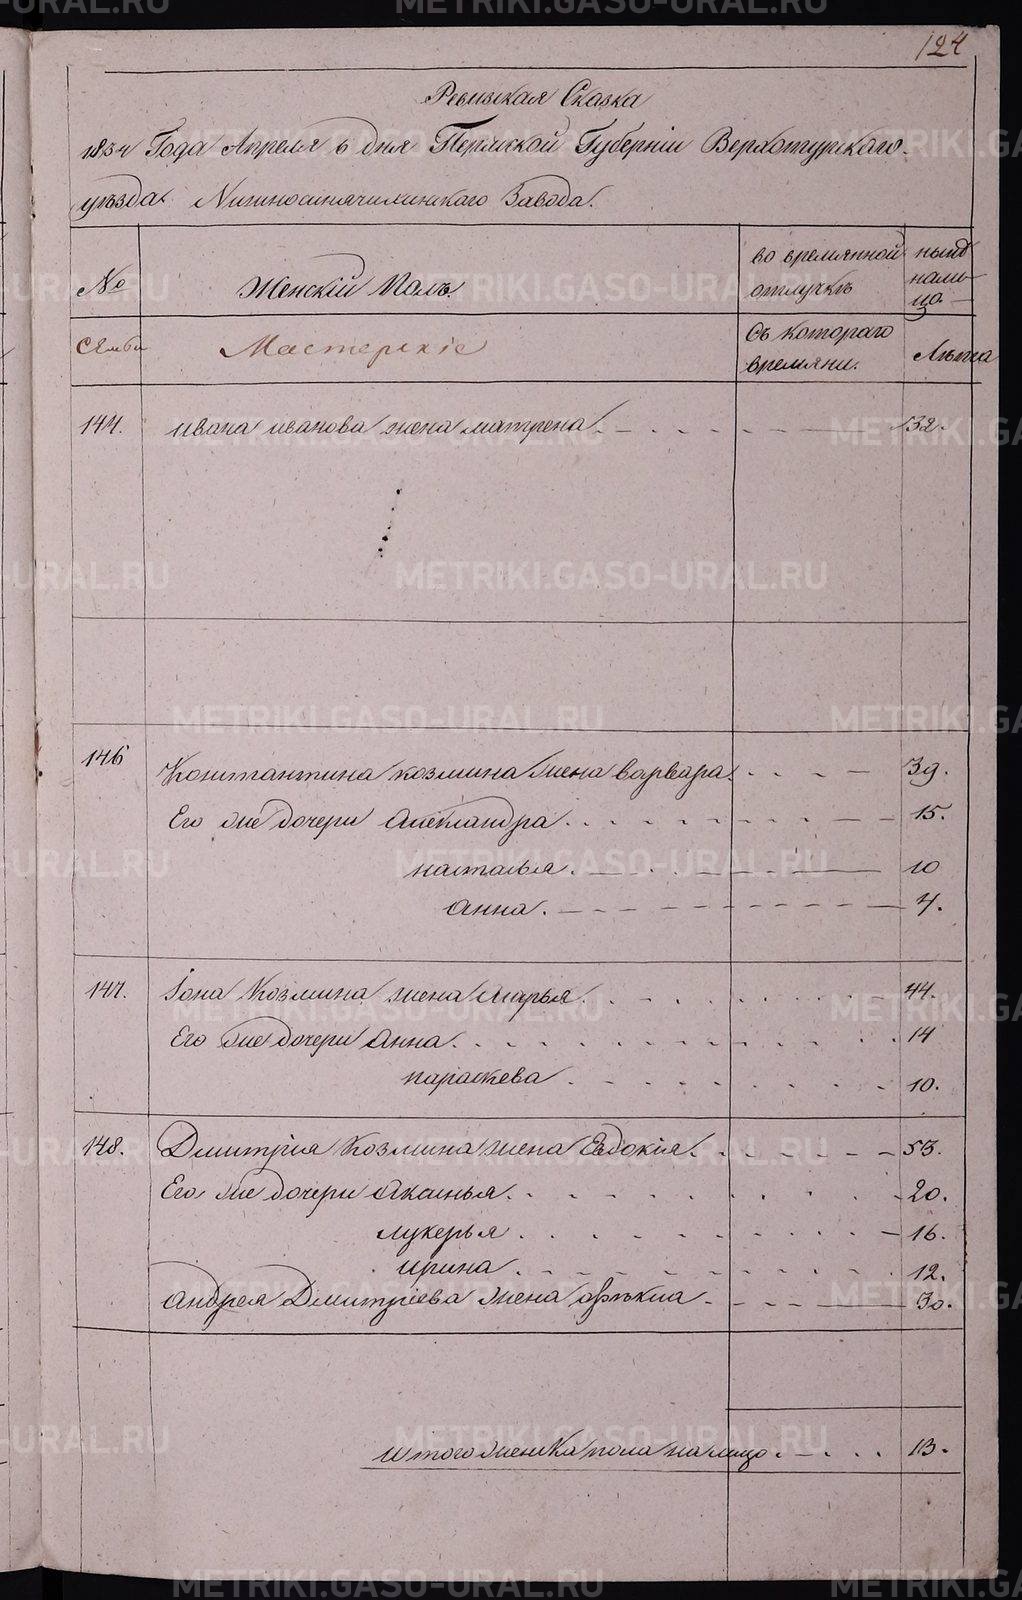 124
Ревизская Сказка
1834 Года Апреля 6 дня Пермской Губернiи Верхотурскаго
уѣзда Нижносинячихинскаго Завода.
№ Женскiй Полъ. во времянной отлучкѣ нынѣ налицо.
Семьи Мастерскiе Съ котораго времяни. Лѣтга
144. ивана иванова жена матрена. 32.
146 Константина козмина жена варвара. 39.
Его же дочери Александра. 15.
наталья. 10
Анна. 4.
147. Iона Козмина жена Марья. 44.
Его же дочери Анна. 14
параскева. 10.
148. Дмитрiя Козмина жена Евдокiя. 53.
Его же дочери Аксинья. 20.
лукерья. 16.
ирина. 12.
Андрея Дмитрiева жена афѣкиа. 30.
итого женска пола налицо. 13.
METRIKI.GASO-URAL.RU